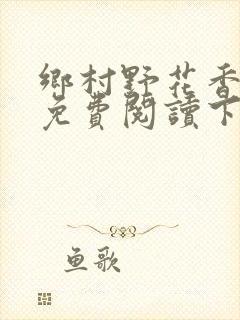 鄉村野花香
免費閱讀下
鱼歌